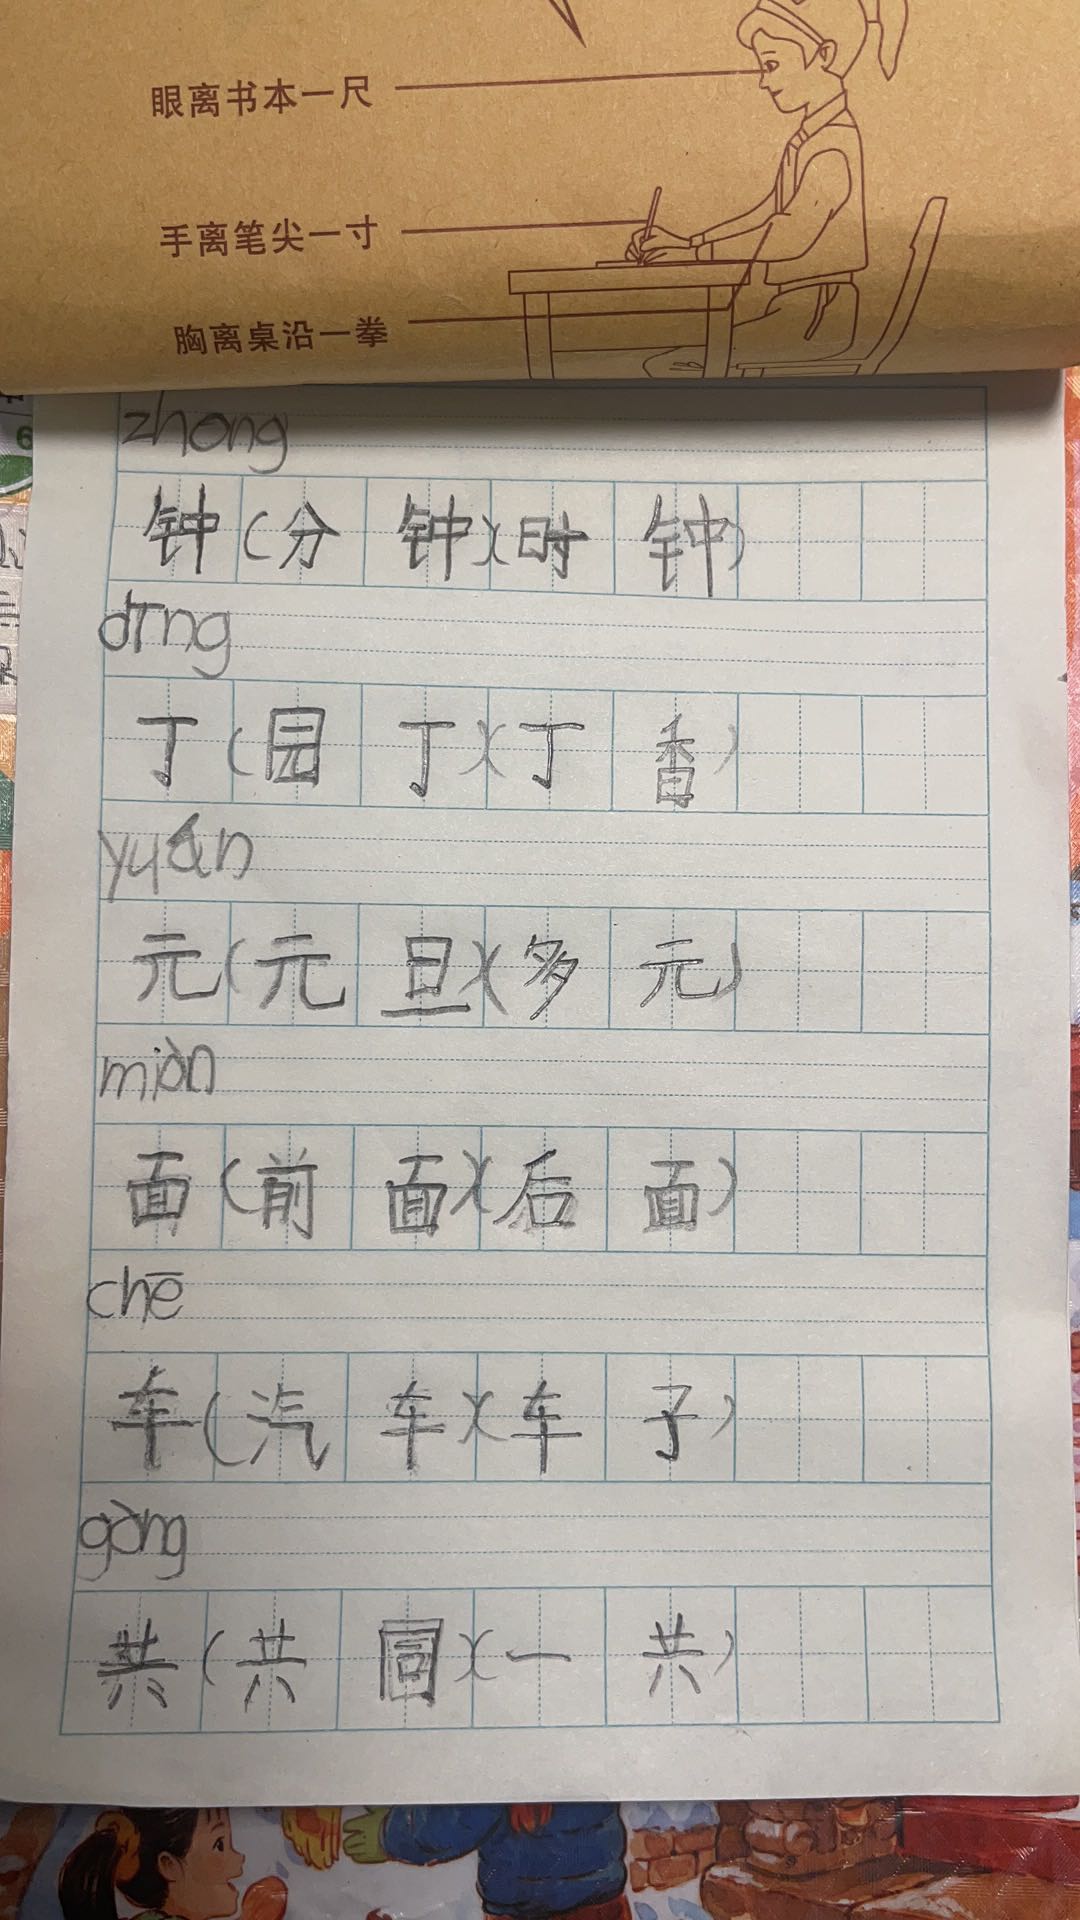 眼离书本一尺
手离笔尖一寸
胸离桌沿一拳
6
zhong
钟(分钟)(时钟)
dīng
丁(园丁)(丁香)
yuán
元(元旦)(多元)
miàn
面(前面)(后面)
chē
车(汽车)(车子)
gòng
共(共同)(一共)